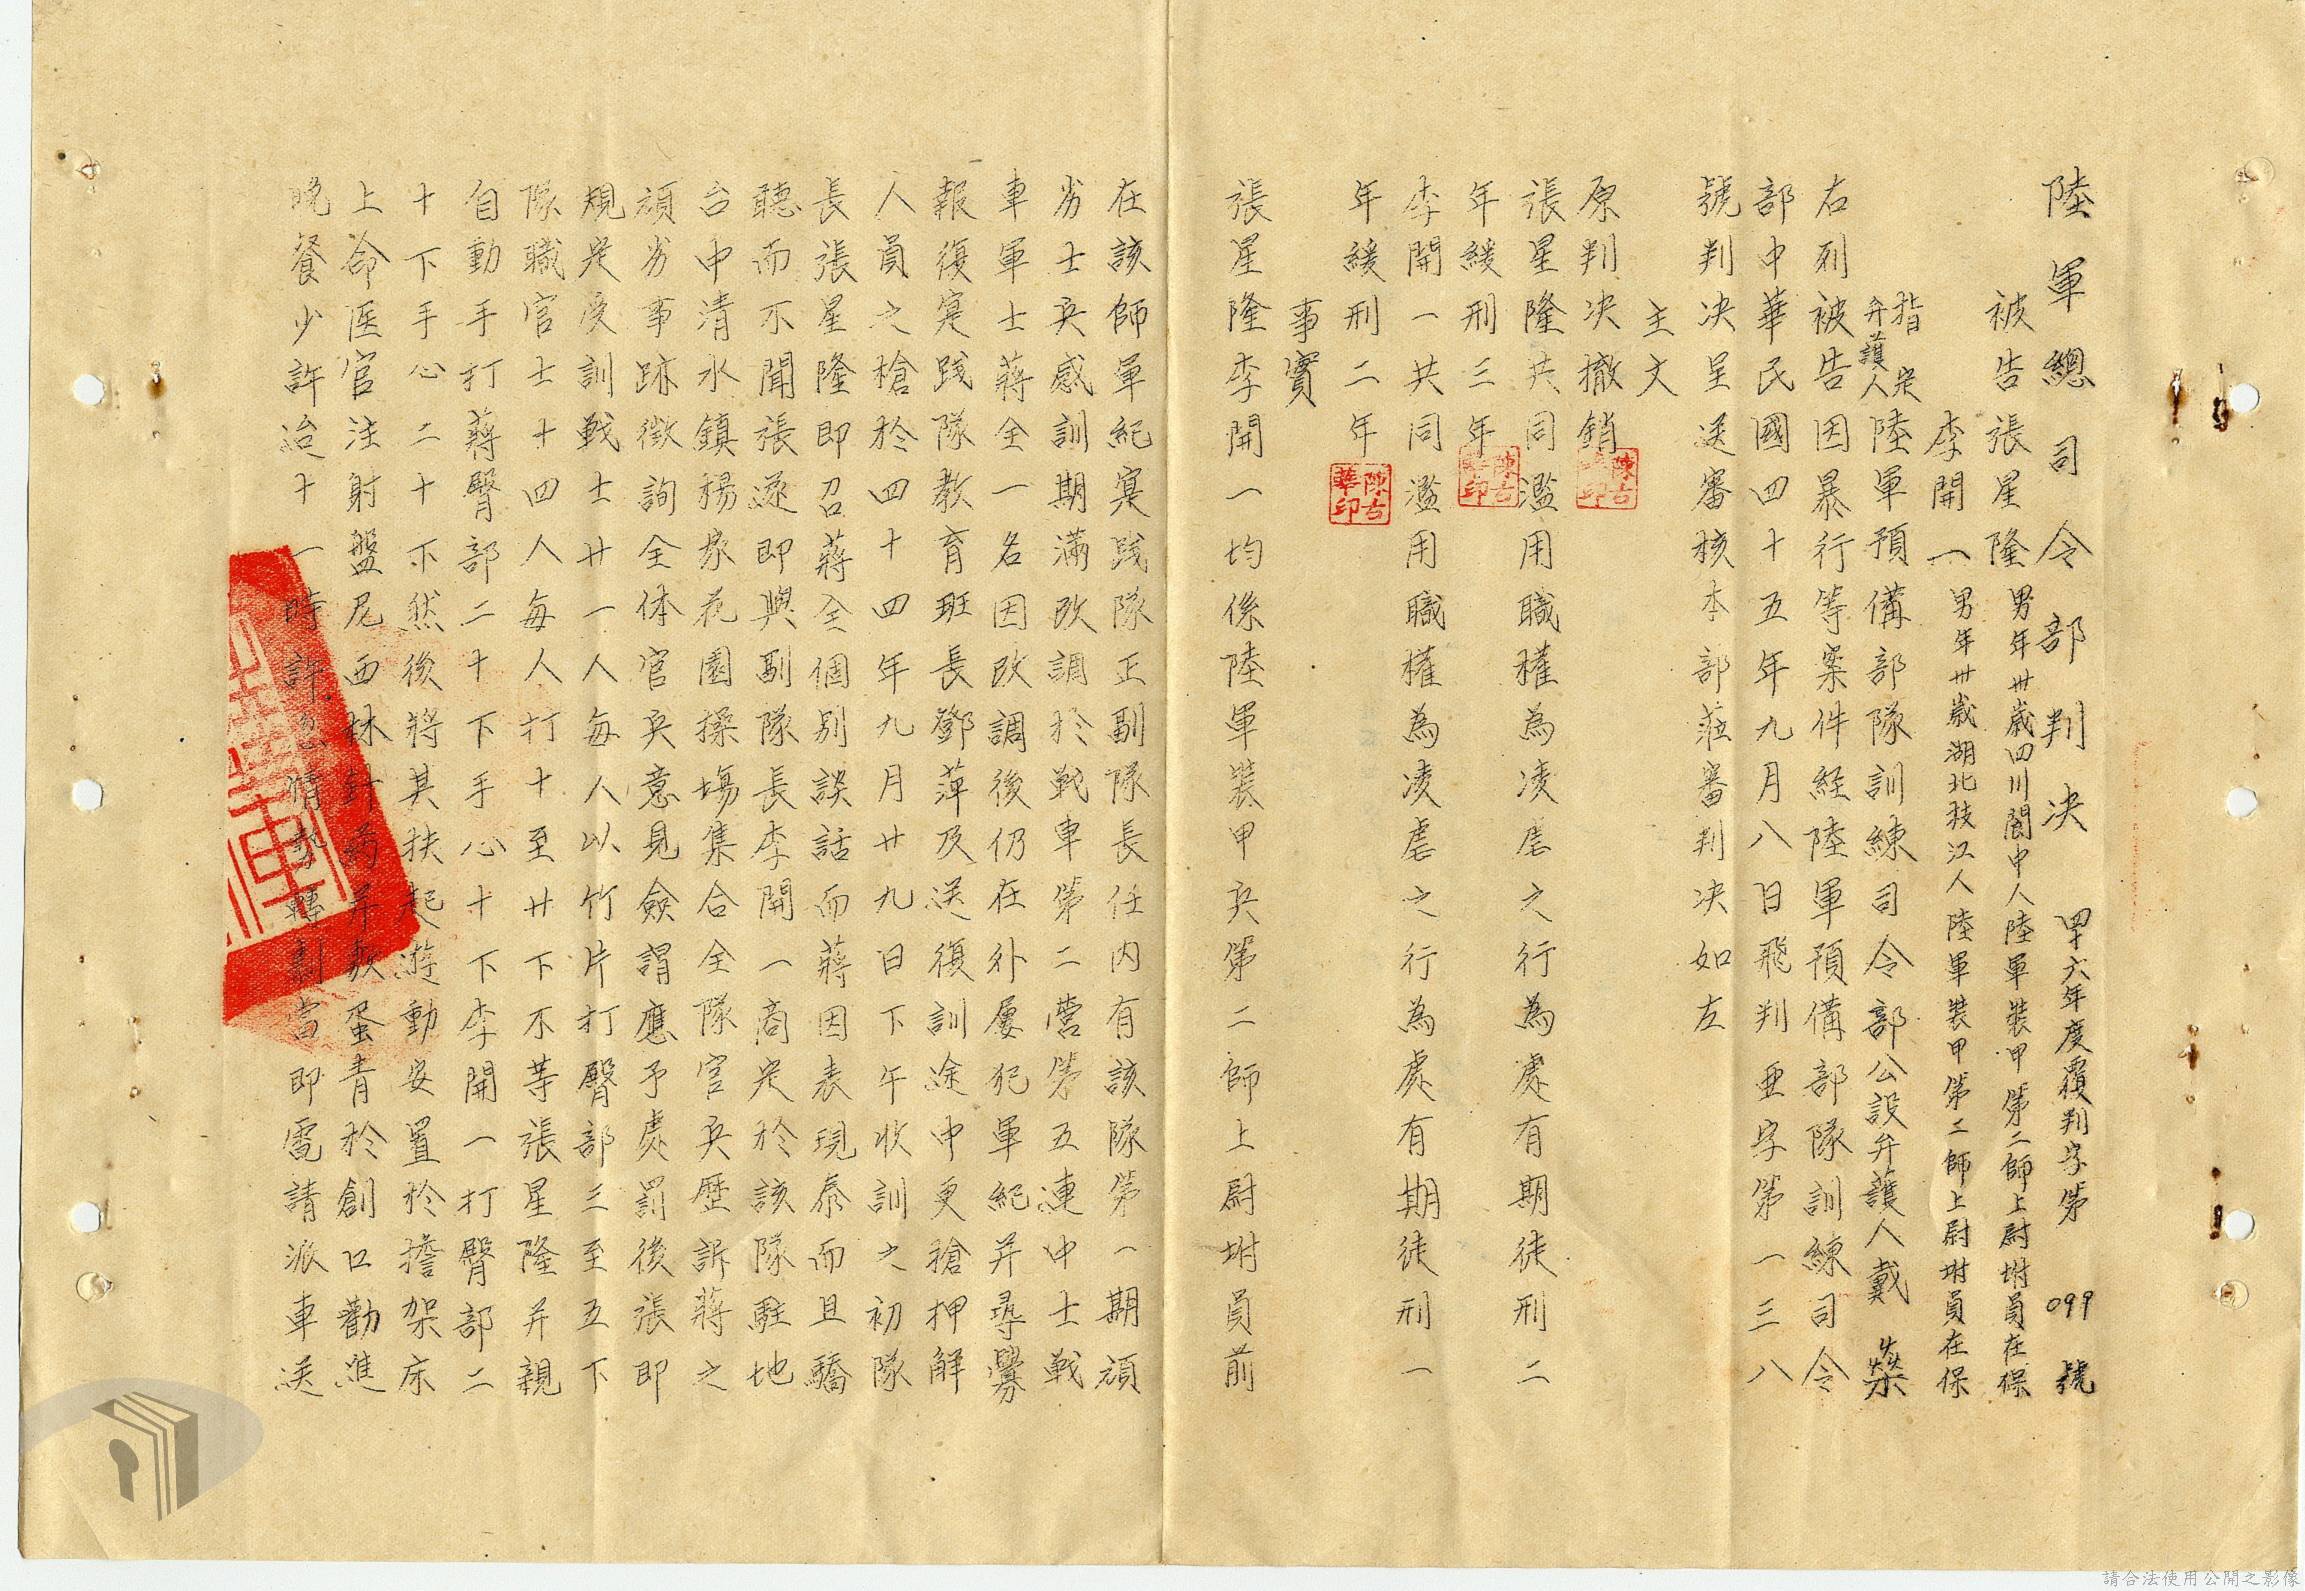 陸軍總司令部判決　四十六年度覆判字第 099 號
被告張星隆 男年卅歲四川閬中人陸軍裝甲第二師上尉坿員在保
李開一 男年卅歲湖北枝江人陸軍裝甲第二師上尉坿員在保
指定弁護人陸軍預備部隊訓練司令部公設弁護人戴燊
右列被告因暴行等案件經陸軍預備部隊訓練司令
部中華民國四十五年九月八日飛判亜字第一三八
號判決呈送審核本部蒞審判決如左
主文
原判決撤銷
張星隆共同濫用職權為凌虐之行為處有期徒刑二
年緩刑三年
李開一共同濫用職權為凌虐之行為處有期徒刑一
年緩刑二年
事實
張星隆李開一均係陸軍裝甲兵第二師上尉坿員前
在該師軍紀寔踐隊正副隊長任内有該隊第一期頑
劣士兵感訓期滿改調於戰車第二營第五連中士戰
車軍士蔣全一名因改調後仍在外屢犯軍紀并尋釁
報復寔踐隊教育班長鄧萍及送復訓途中更搶押解
人員之槍於四十四年九月廿九日下午收訓之初隊
長張星隆即召蔣全個別談話而蔣因表現泰而且驕
聽而不聞張遂即與副隊長李開一商定於該隊駐地
台中清水鎮楊家花園操場集合全隊官兵歷訴蔣之
頑劣事跡徵詢全体官兵意見僉謂應予處罰後張即
規定受訓戰士廿一人每人以竹片打臀部三至五下
隊職官士十四人每人打十至廿下不等張星隆并親
自動手打蔣臀部二十下手心十下李開一打臀部二
十下手心二十下然後將其扶起遊動安置於擔架床
上命医官注射盤尼西林針藥并敷蛋青於創口勸進
晚餐少許迨十一時許忽情勢轉劇當即電請派車送
陳古華印
陳古華印
陳古華印
請合法使用公開之影像